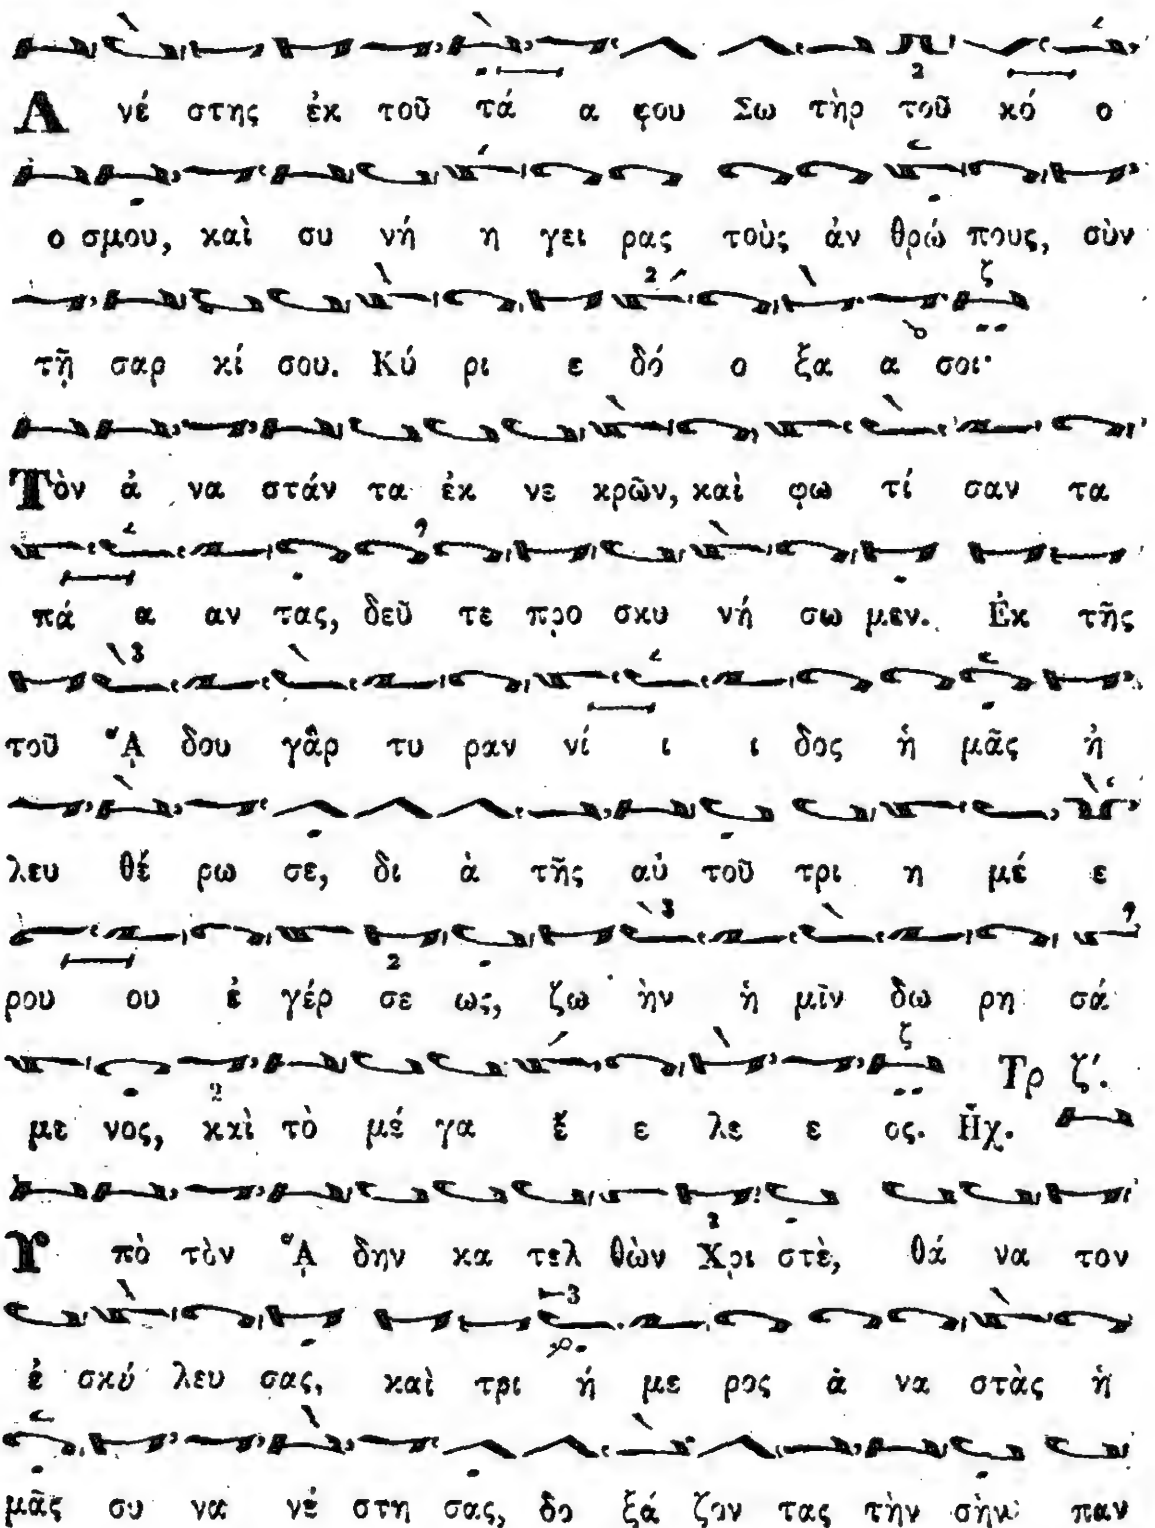 Α νέ στης ἐκ τοῦ τά α φου Σω τὴρ τοῦ κό ο
ο σμου, καὶ συ νή η γει ρας τοὺς ἀν θρώ πους, σὺν
τῇ σαρ κί σου. Κύ ρι ε δό ο ξα α σοι·
Τὸν ἀ να στάν τα ἐκ νε κρῶν, καὶ φω τί σαν τα
πά α αν τας, δεῦ τε προ σκυ νή σω μεν. Ἐκ τῆς
τοῦ ᾍ δου γὰρ τυ ραν νί ι ι δος ἡ μᾶς ἠ
λευ θέ ρω σε, δι ὰ τῆς αὐ τοῦ τρι η μέ ε
ρου ου ἐ γέρ σε ως, ζω ὴν ἡ μῖν δω ρη σά
με νος, καὶ τὸ μέ γα ἔ ε λε ε ος. Ἦχ. Τρ ζ΄.
Υ πὸ τὸν ᾍ δην κα τελ θὼν Χρι στὲ, θά να τον
ἐ σκύ λευ σας, καὶ τρι ή με ρος ἀ να στὰς ἡ
μᾶς συ να νέ στη σας, δο ξά ζον τας τὴν σὴν παν